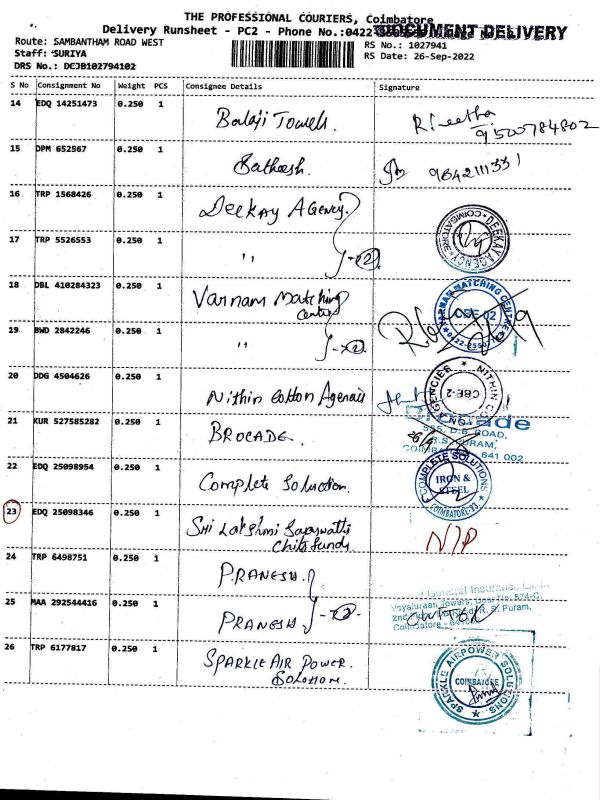 THE PROFESSIONAL COURIERS, Coimbatore
Delivery Runsheet - PC2 - Phone No.:0422
DOCUMENT DELIVERY
Route: SAMBANTHAM ROAD WEST
RS No.: 1027941
Staff: SURIYA
RS Date: 26-Sep-2022
DRS No.: DCJB102794102
S No Consignment No Weight PCS Consignee Details Signature
14 EDQ 14251473 0.250 1 Balaji Towels.
9500784802
15 DPM 652567 0.250 1 Satheesh.
9842111331
16 TRP 1568426 0.250 1 DEEKAY AGENCY
17 TRP 5526553 0.250 1 " -x2
DEEKAY AGENCY
COIMBATORE
18 DBL 410284323 0.250 1 Varnam Matching
Centre
VARNAM MATCHING CENTRE
CBE-02
19 BWD 2842246 0.250 1 " -x2
20 DDG 4504626 0.250 1 Nithin Cotton Agencies
NITHIN COTTON AGENCIES
CBE-2
21 KUR 527585282 0.250 1 BROCADE.
26/9
D.B. ROAD,
R.S. PURAM,
641 002
22 EDQ 25098954 0.250 1 Complete Solution.
COMPLETE SOLUTIONS
IRON &
STEEL
COIMBATORE-23
23 EDQ 25098346 0.250 1 Sri Lakshmi Saraswathi
Chits Funds
N/P
24 TRP 6498751 0.250 1 PRANESH.
25 MAA 292544416 0.250 1 PRANESH -x2
General Insurance
Towers, Door No. 574-C,
R. S. Puram,
Coimbatore
26 TRP 6177817 0.250 1 SPARKLE AIR POWER.
SOLUTION.
SPARKLE AIRPOWER SOLUTIONS
COIMBATORE